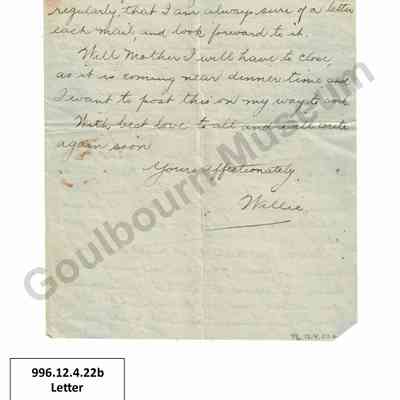 regularly, that I am always sure of a letter
each mail, and look forward to it.
Well Mother I will have to close,
as it is coming near dinner time and
I want to post this on my way to
With best love to all and will write
again soon
Yours affectionately
Willie
Goulbourn Museum
996.12.4.22b
Letter